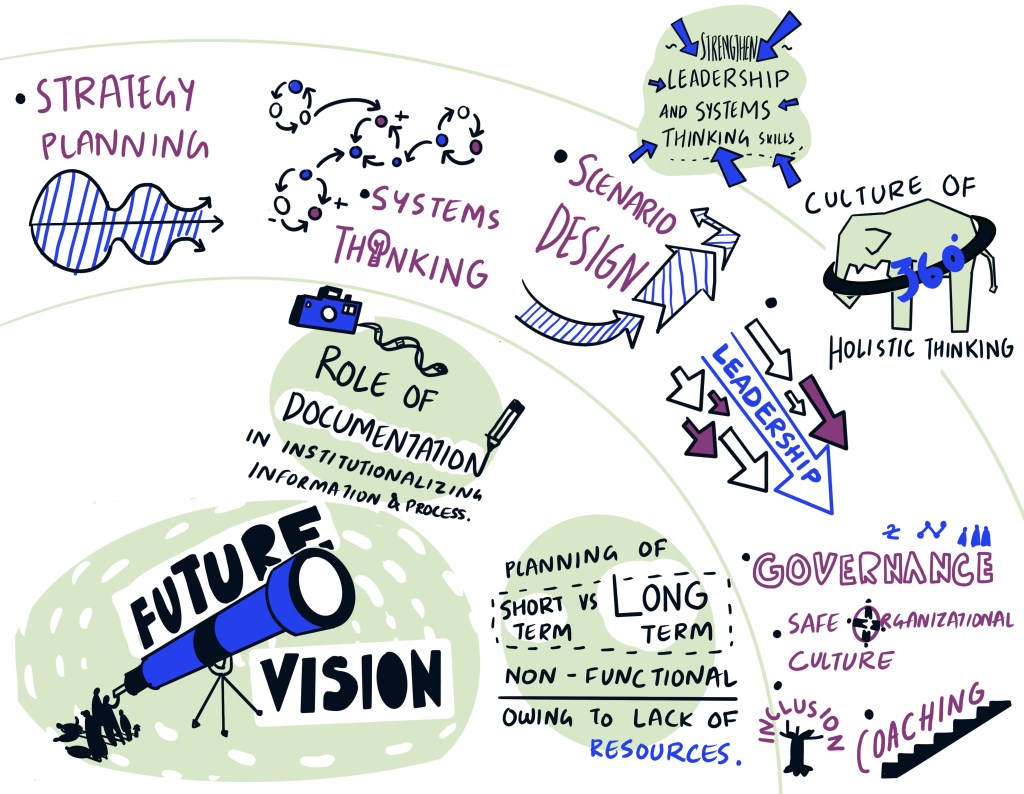 • STRATEGY
PLANNING
+
+
-
• SYSTEMS
THINKING
• SCENARIO
DESIGN
~ STRENGTHEN ~
LEADERSHIP
AND SYSTEMS
THINKING SKILLS
CULTURE OF
360°
HOLISTIC THINKING
• LEADERSHIP
ROLE OF
DOCUMENTATION
IN INSTITUTIONALIZING
INFORMATION & PROCESS.
FUTURE
VISION
PLANNING OF
SHORT VS LONG
TERM TERM
NON - FUNCTIONAL
OWING TO LACK OF
RESOURCES.
• GOVERNANCE
• SAFE ORGANIZATIONAL
CULTURE
• INCLUSION
• COACHING